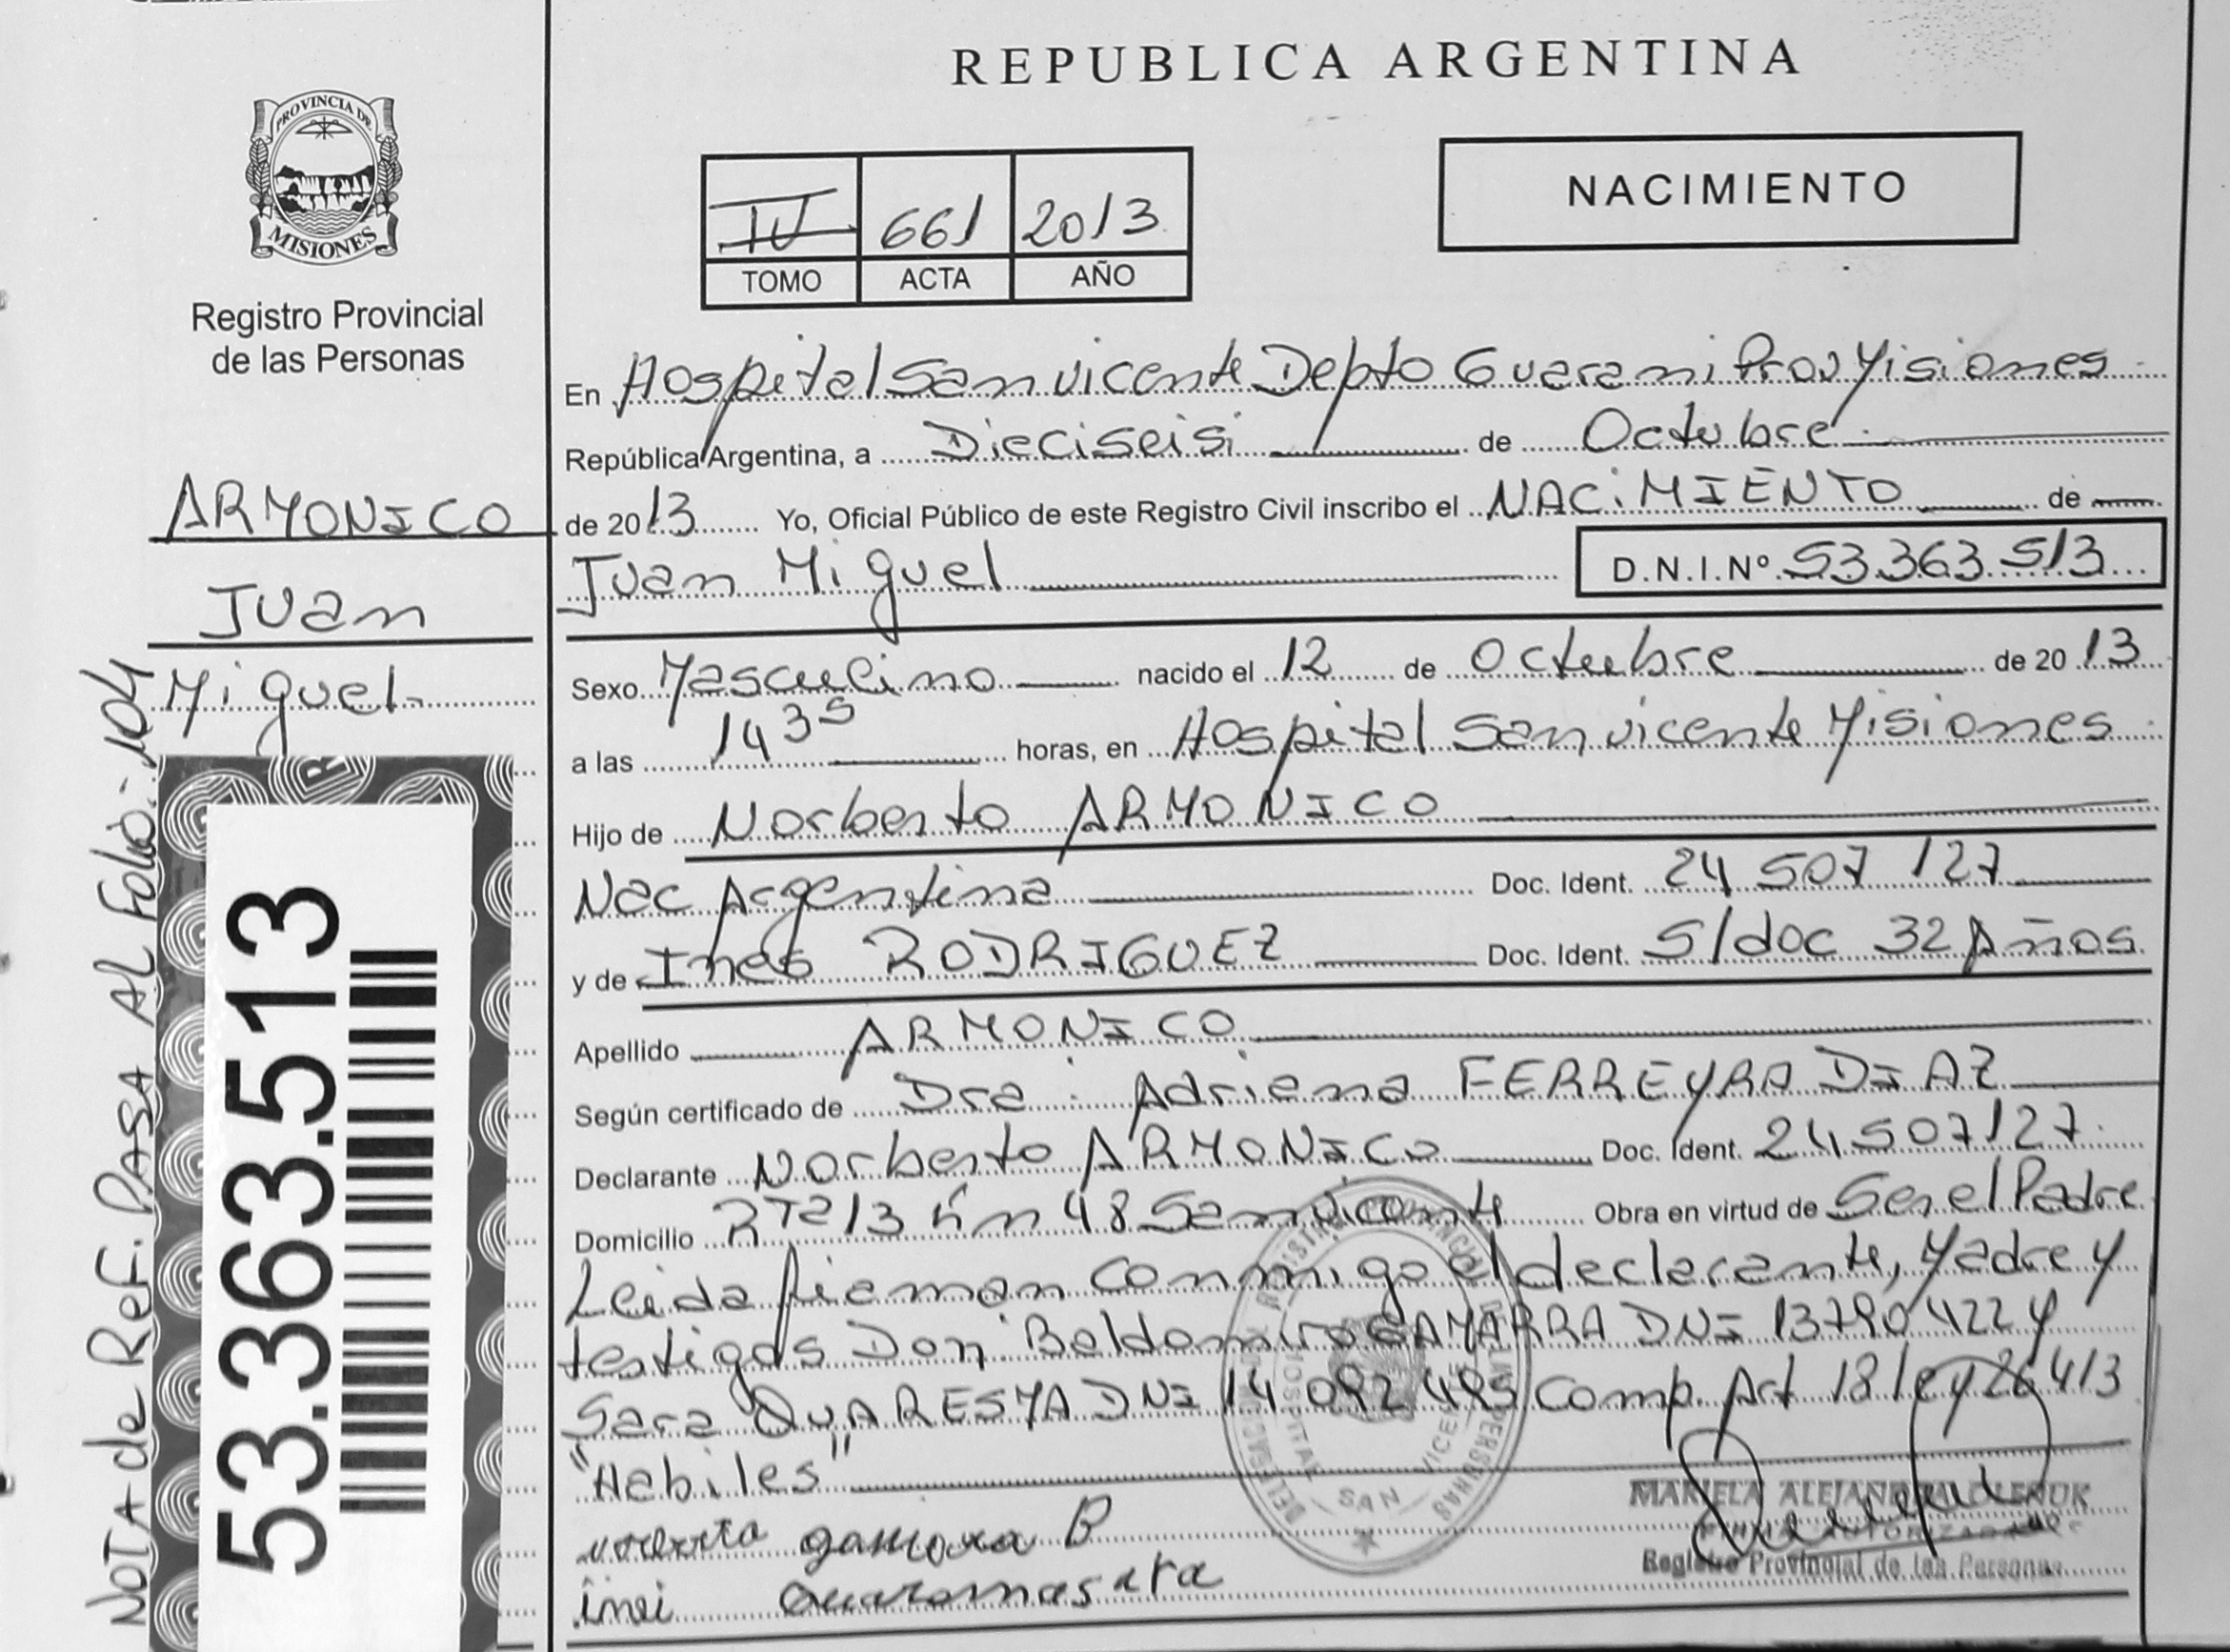 REPUBLICA ARGENTINA
PROVINCIA DE
MISIONES
Registro Provincial
de las Personas
IV 661 2013
TOMO ACTA AÑO
NACIMIENTO
ARMONICO
Juan
Miguel
NOTA de Ref. PASA AL Folio: 104
53.363.513
En Hospital San vicente Depto Guarani Prov Misiones
República Argentina, a Dieciseis de Octubre
de 2013 Yo, Oficial Público de este Registro Civil inscribo el NACIMIENTO de
Juan Miguel D.N.I.Nº 53.363.513
Sexo Masculino nacido el 12 de Octubre de 2013
a las 14 35 horas, en Hospital San vicente Misiones
Hijo de Norberto ARMONICO
Nac Argentina Doc. Ident. 24 507 127
y de Ines RODRIGUEZ Doc. Ident. S/doc 32 Años
Apellido ARMONICO
Según certificado de Dra: Adriana FERREYRA DIAZ
Declarante Norberto ARMONICO Doc. Ident. 24507127
Domicilio RTa 13 Km 48 San vicente Obra en virtud de Ser el Padre
Leida firman conmigo el declarante, Madre y
testigos Don Baldomiro GAMARRA DNI 13790422 y
Sara QUARESMA DNI 14 092 495 Comp. Art 18 ley 26413
"Habiles"
gamora B
inei
MARIELA ALEJANDRA
FIRMA AUTORIZADA
Registro Provincial de las Personas
HOSPITAL SAN VICENTE